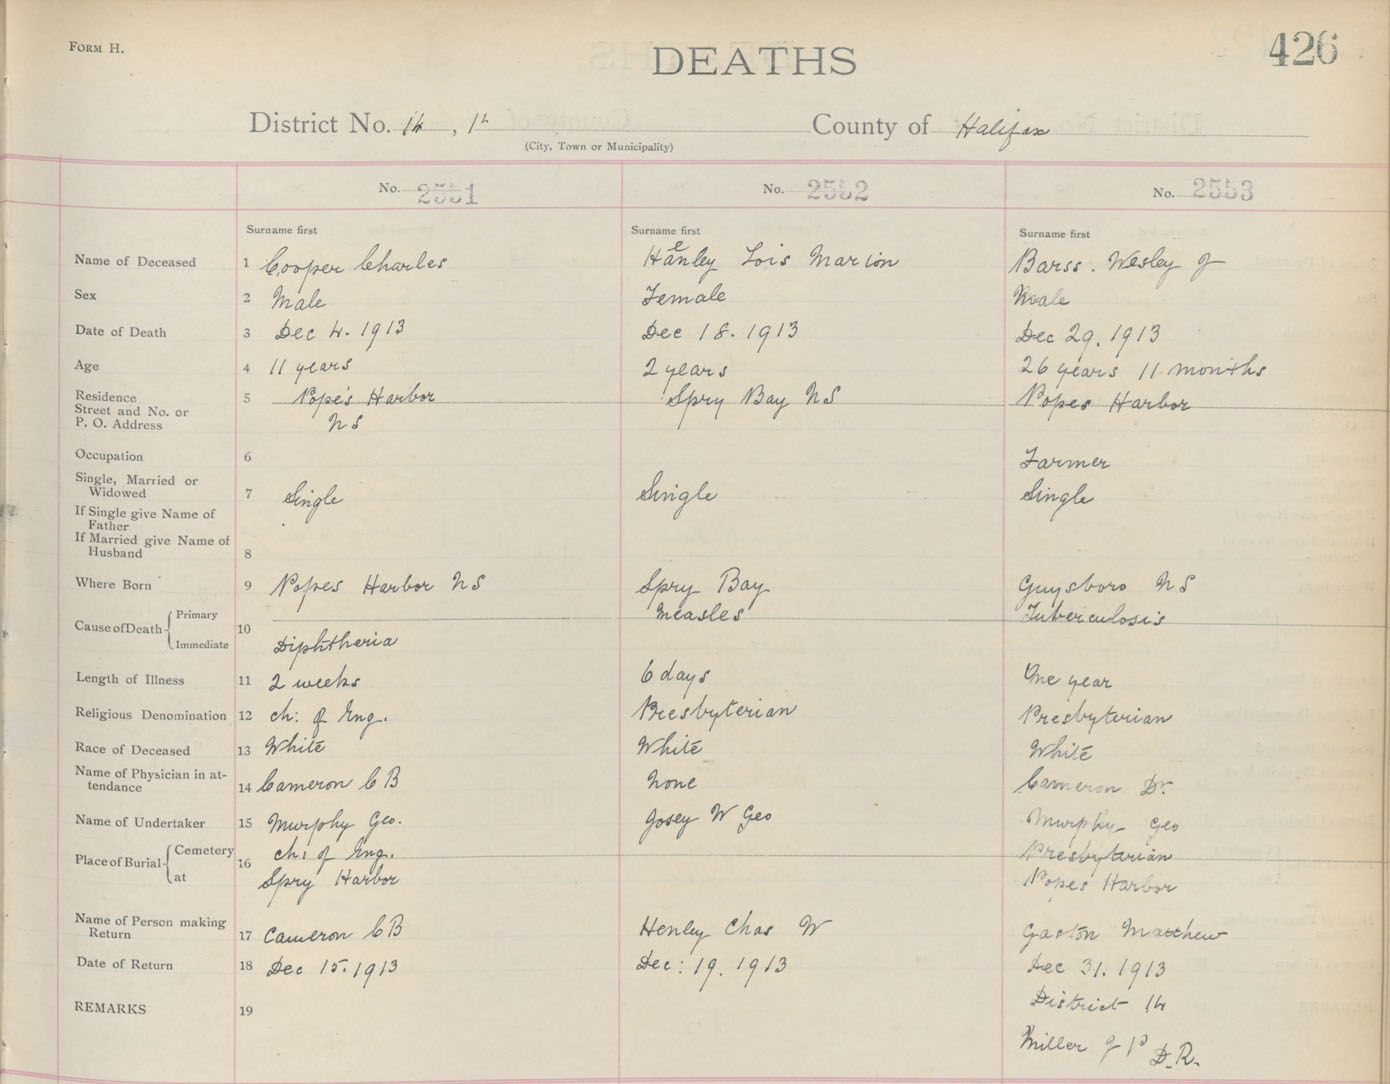 FORM H.
DEATHS
426
District No. 14, 1 County of Halifax
(City, Town or Municipality)
No. 2551 No. 2552 No. 2553
Surname first Surname first Surname first
Name of Deceased 1 Cooper Charles Haenley Lois Marion Barss. Wesley J
Sex 2 Male Female Male
Date of Death 3 Dec 4. 1913 Dec 18. 1913 Dec 29. 1913
Age 4 11 years 2 years 26 years 11 months
Residence 5 Pope's Harbor Spry Bay NS Popes Harbor
Street and No. or
P. O. Address NS
Occupation 6 Farmer
Single, Married or
Widowed 7 Single Single Single
If Single give Name of
Father
If Married give Name of
Husband 8
Where Born 9 Popes Harbor NS Spry Bay Guysboro NS
Cause of Death Primary Measles Tuberculosis
10 Immediate Diphtheria
Length of Illness 11 2 weeks 6 days One year
Religious Denomination 12 ch: of Eng. Presbyterian Presbyterian
Race of Deceased 13 White White White
Name of Physician in at-
tendance 14 Cameron C B None Cameron Dr.
Name of Undertaker 15 Murphy Geo. Josey W Geo Murphy Geo
Place of Burial Cemetery 16 ch: of Eng. Presbyterian
at Spry Harbor Popes Harbor
Name of Person making
Return 17 Cameron C B Henley Chas W Gaston Matthew
Date of Return 18 Dec 15. 1913 Dec: 19. 1913 Dec 31. 1913
REMARKS 19 District 14
Miller J P D.R.